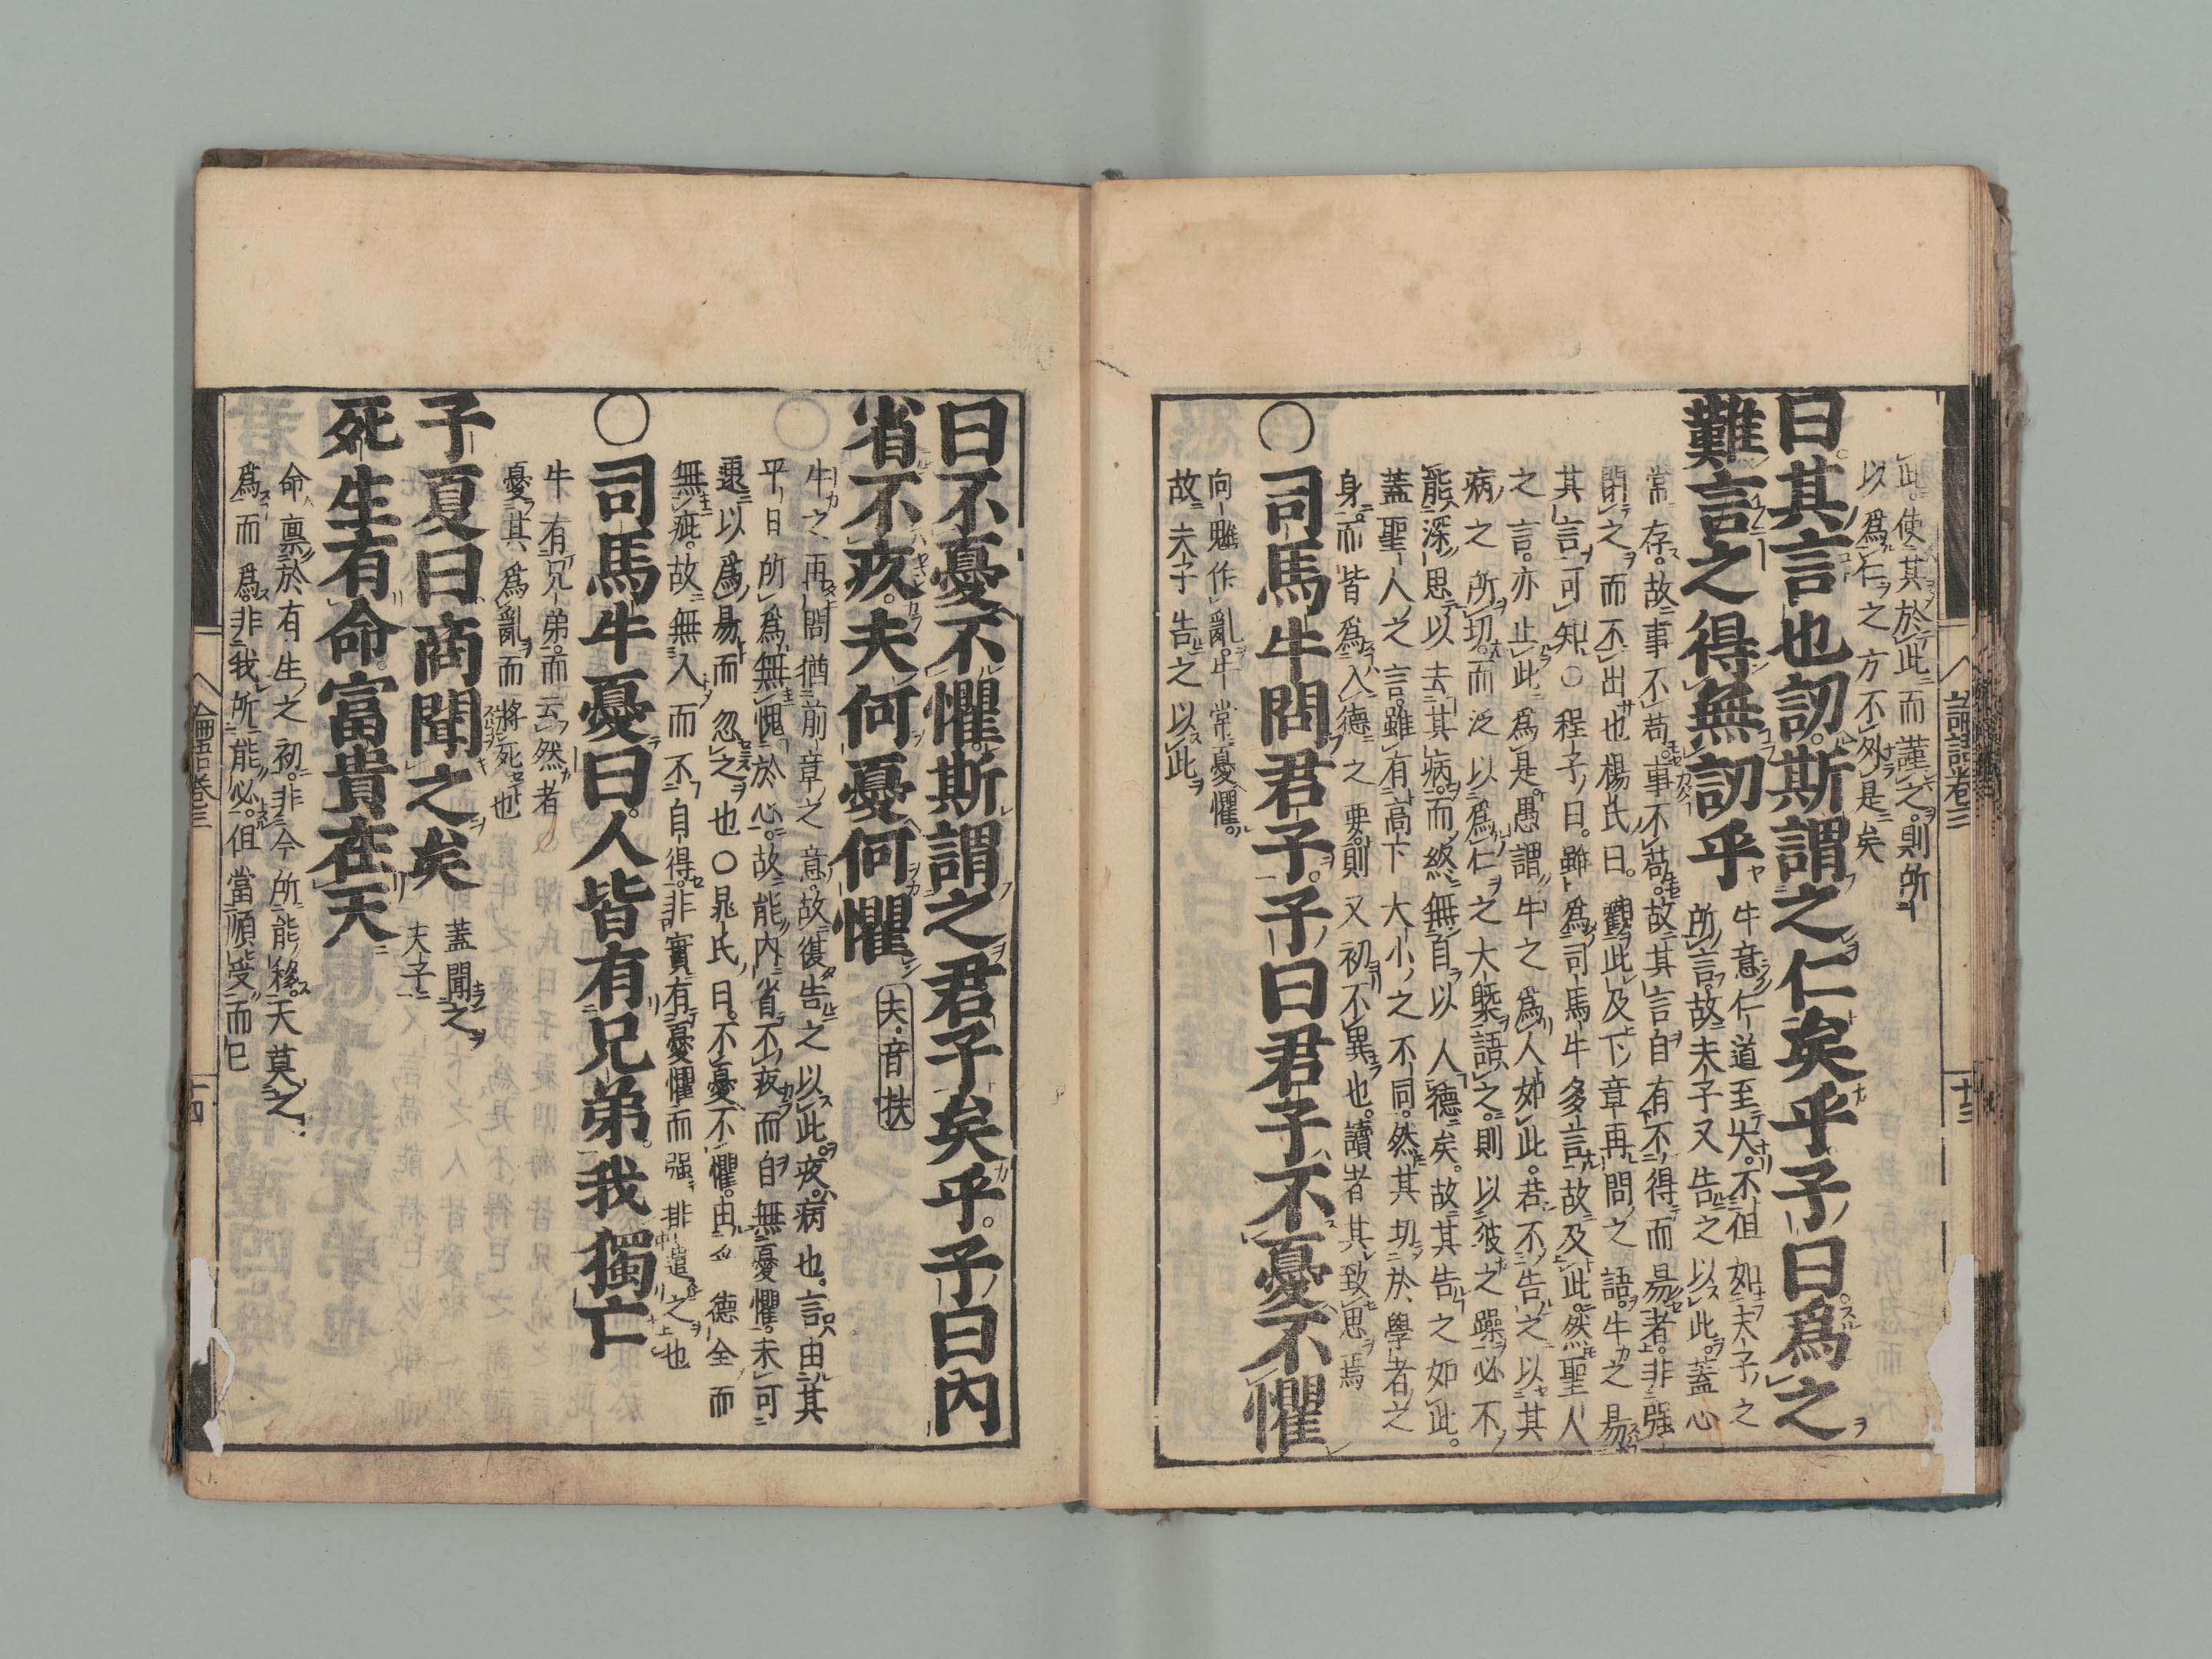 此使其於此而謹之則所
以爲仁之方不外是矣
曰其言也訒斯謂之仁矣乎子曰爲之
難言之得無訒乎
牛意仁道至大不但如夫子之
所言故夫子又告之以此蓋心
常存故事不苟事不苟故其言自有不得而易者非强
閉之而不出也楊氏曰觀此及下章再問之語牛之易
其言可知○程子曰雖爲司馬牛多言故及此然聖人
之言亦止此爲是愚謂牛之爲人如此若不告之以其
病之所切而泛以爲仁之大槩語之則以彼之躁必不
能深思以去其病而終無自以入德矣故其告之如此
蓋聖人之言雖有高下大小之不同然其切於學者之
身而皆爲入德之要則又初不異也讀者其致思焉
○司馬牛問君子子曰君子不憂不懼
向魋作亂牛常憂懼
故夫子告之以此
論語卷三
十三
曰不憂不懼斯謂之君子矣乎子曰內
省不疚夫何憂何懼
夫音扶
牛之再問猶前章之意故復告之以此疚病也言由其
平日所爲無愧於心故能内省不疚而自無憂懼未可
遽以爲易而忽之也○晁氏曰不憂不懼由乎德全而
無疵故無入而不自得非實有憂懼而强排遣之也
○司馬牛憂曰人皆有兄弟我獨亡
牛有兄弟而云然者
憂其爲亂而將死也
子夏曰商聞之矣
蓋聞之
夫子
死生有命富貴在天
命禀於有生之初非今所能移天莫之
爲而爲非我所能必但當順受而已
論語卷三
十四